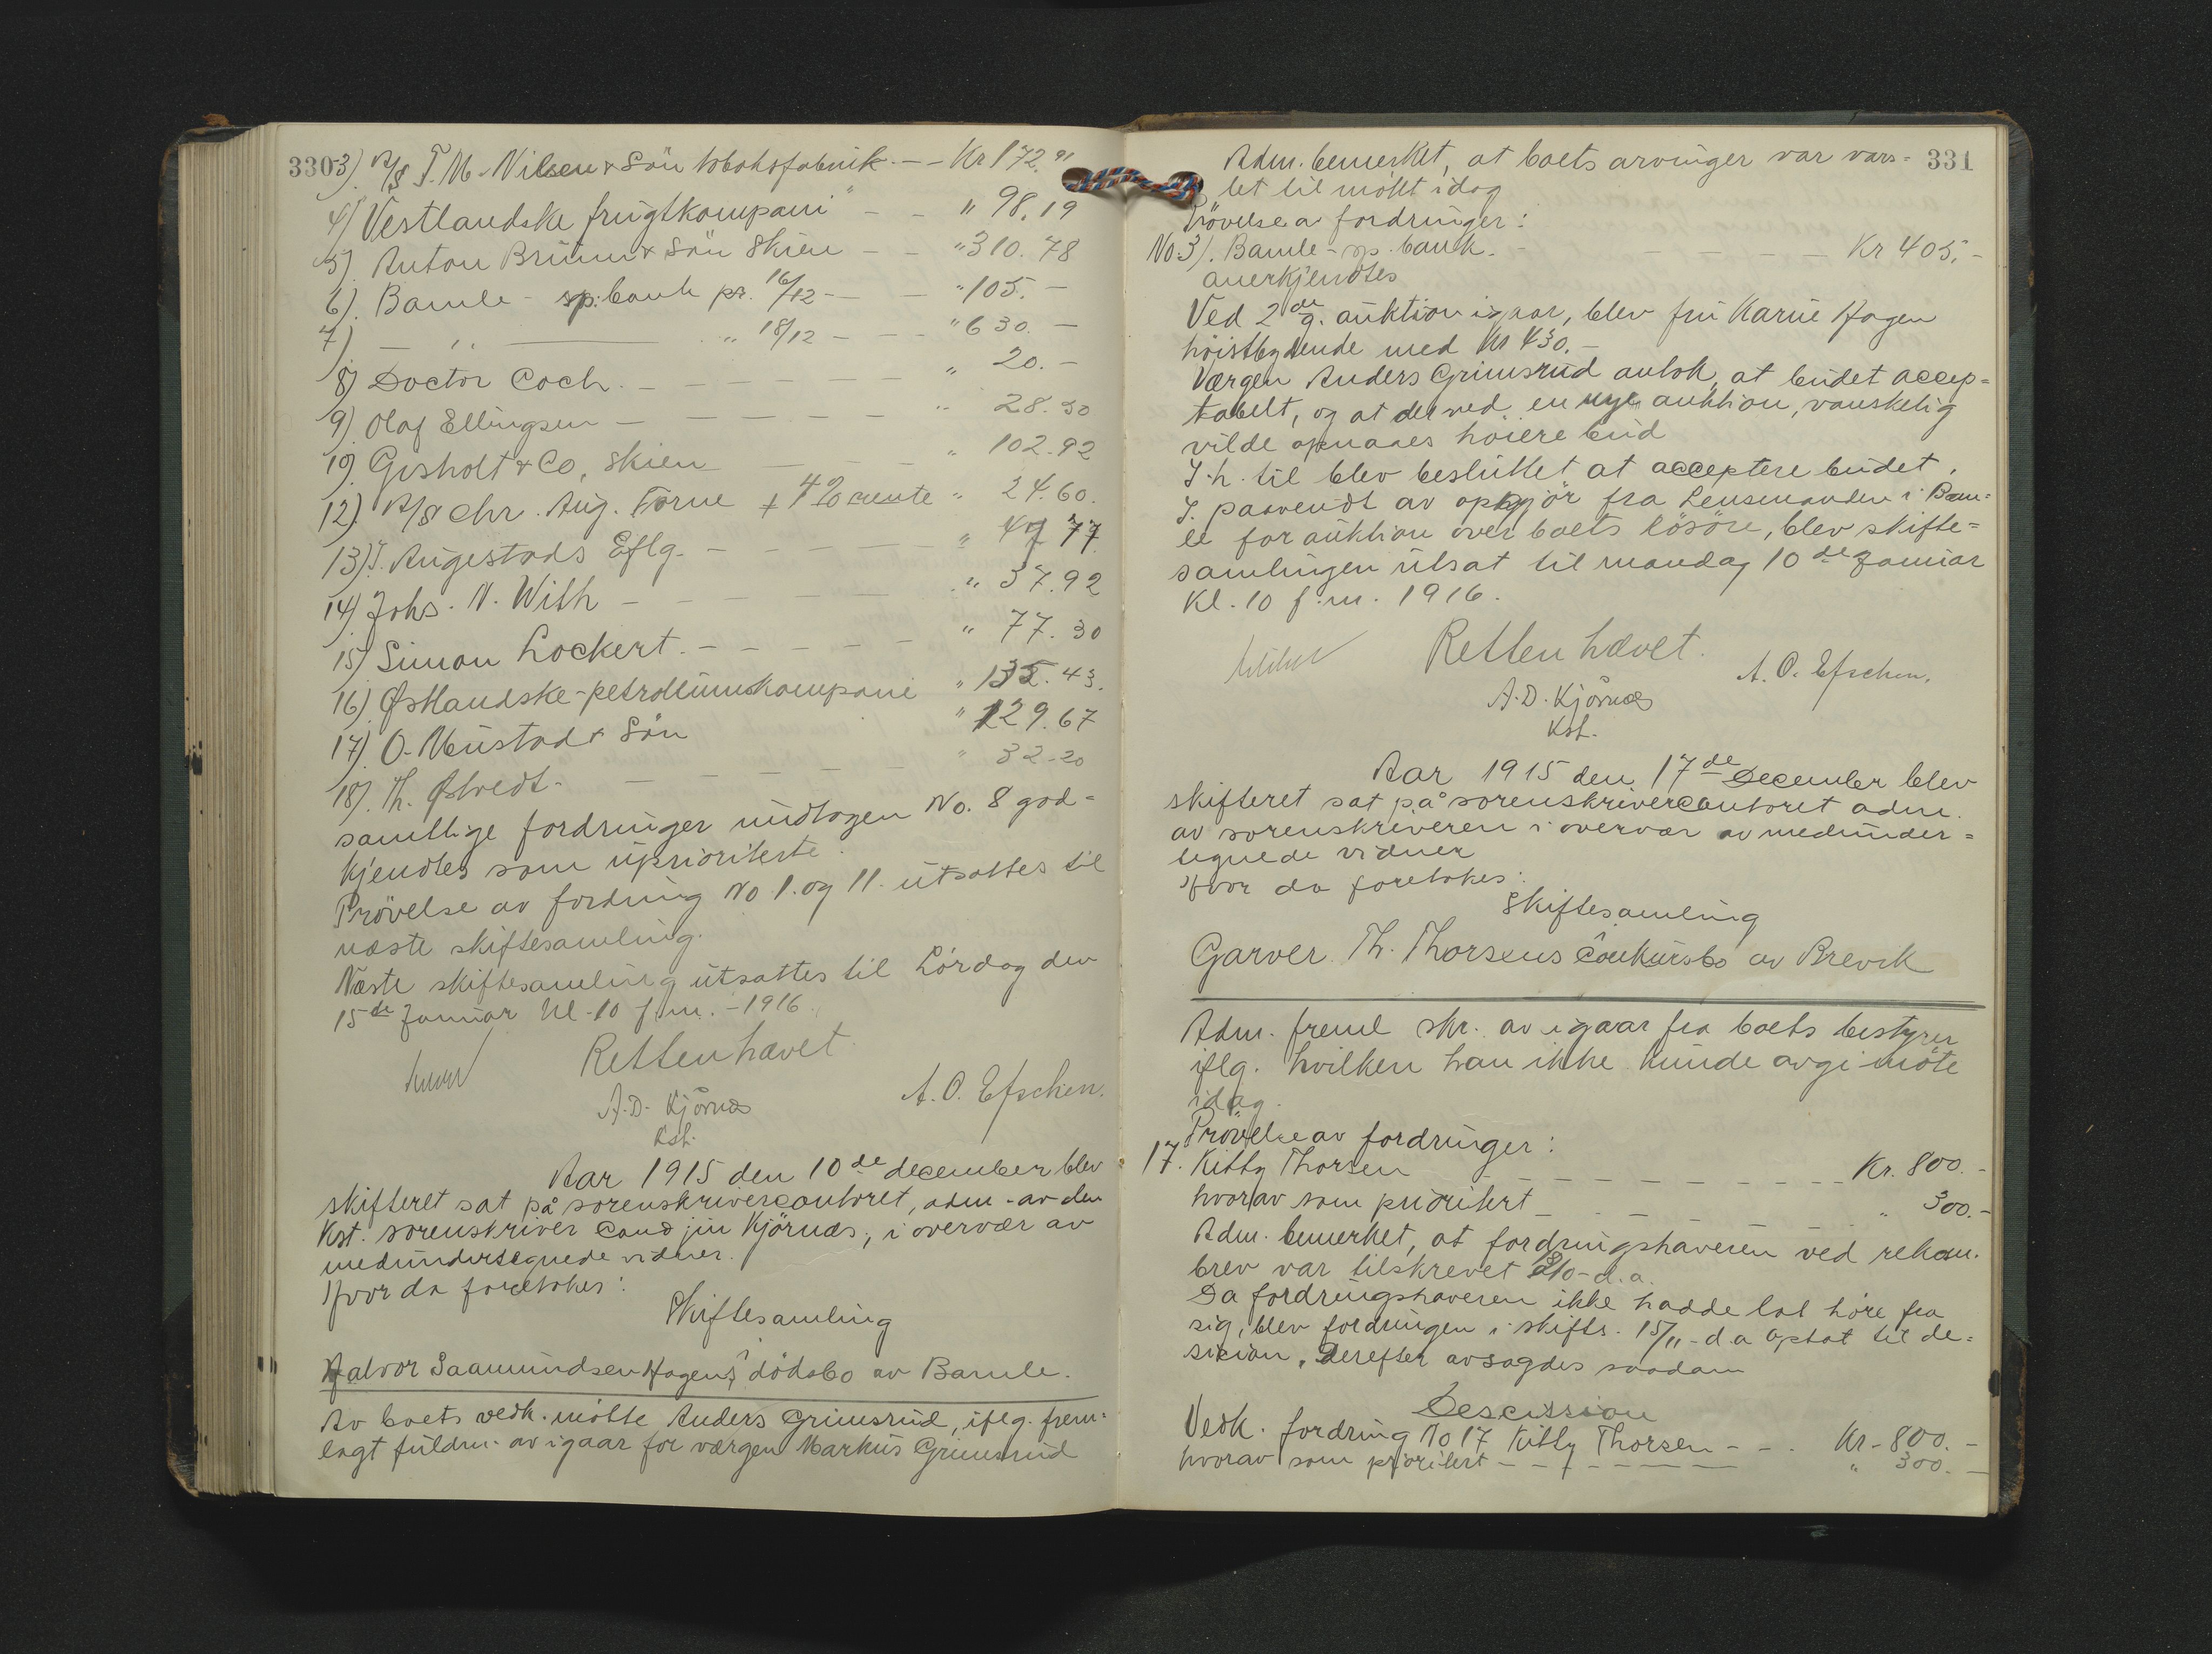 330
3). A/S T. M. Nilsen & Sön tobaksfabrik. — Kr 172.91
4) Vestlandske frugtkompani — — " 98.19
5). Anton Brünn & Sön Skien — — " 310.78
6). Bamle - sp. bank pr. 16/12 — — " 105. —
7) — " — " 18/12 — — " 630. —
8) Doctor Coch. — — — " 20. —
9) Olaf Ellingsen — — — " 28.30
10) Gisholt & Co, Skien — — " 102.92
12). A/S Chr. Aug. Torne + 4% rente " 24.60.
13) J. Augestads Eftg. — — — " 49 77
14) Johs. N. With — — — " 37.92
15) Simon Lockert. — — — " 77.30
16) Østlandske-petroliumskompani " 135.43.
17) O. Neustad & Sön " 129.67
18). Th. Østvedt. — — — " 32.20
samtlige fordringer undtagen No. 8 god-
kjendtes som uprioriterte.
Prövelse av fordring No 1. og 11. utsattes til
næste skiftesamling.
Næste skiftesamling utsattes til Lördag den
15de Januar kl. 10 f.m. - 1916.
Retten hævet
A. D. Kjörnæs
Kst.
A. O. Efschen.
Aar 1915 den 10de december blev
skifteret sat på sorenskrivercontoret, adm. av den
Kst. sorenskriver Cand jur Kjörnæs, i overvær av
medundertegnede vidner.
Hvor da foretokes:
Skiftesamling
Halvor Saamundsen Hagens dödsbo av Bamle.
Av boets vedk. mötte Anders Grimsrud, iflg. frem-
lagt fuldm. av igaar for værgen Markus Grimsrud
331
Adm. bemerket, at boets arvinger var vars-
let til möte idag
Prövelse av fordringer:
No 3). Bamle - sp. bank. — — — Kr 405. —
anerkjendtes
Ved 2de g. auktion igaar, blev fru Karine Hagen
höistbydende med Kr 430. —
Værgen Anders Grimsrud antok, at budet accep-
tabelt, og at der ved en nye auktion, vanskelig
vilde opnaaes höiere bud
I. h. til blev besluttet at acceptere budet.
I paavendt av opgjör fra Lensmanden i Bam-
le for auktion over boets lösöre, blev skifte-
samlingen utsat til mandag 10de Januar
Kl. 10 f.m. 1916.
Retten hævet.
A. D. Kjörnæs
Kst.
A. O. Efschen.
Aar 1915 den 17de December blev
skifteret sat på sorenskrivercontoret adm.
av sorenskriveren i overvær av medunder-
tegnede vidner
Hvor da foretokes:
Skiftesamling
Garver Th. Thorsens Conkursbo av Brevik
Adm. freml skr. av igaar fra boets bestyrer
iflg. hvilken han ikke kunde avgi möte
idag.
Prövelse av fordringer:
17. Kitty Thorsen — — — Kr. 800. —
hvorav som prioritert — — — " 300. —
Adm. bemerket, at fordringshaveren ved rekom.
brev var tilskrevet 2/10 - d. a.
Da fordringshaveren ikke hadde lat höre fra
sig, blev fordringen i skifts. 15/11 - d a optat til de-
sision. Derefter avsagdes saadan
Descission
Vedk. fordring No 17 Kitty Thorsen — — Kr. 800. —
hvorav som prioritert — — — " 300. —